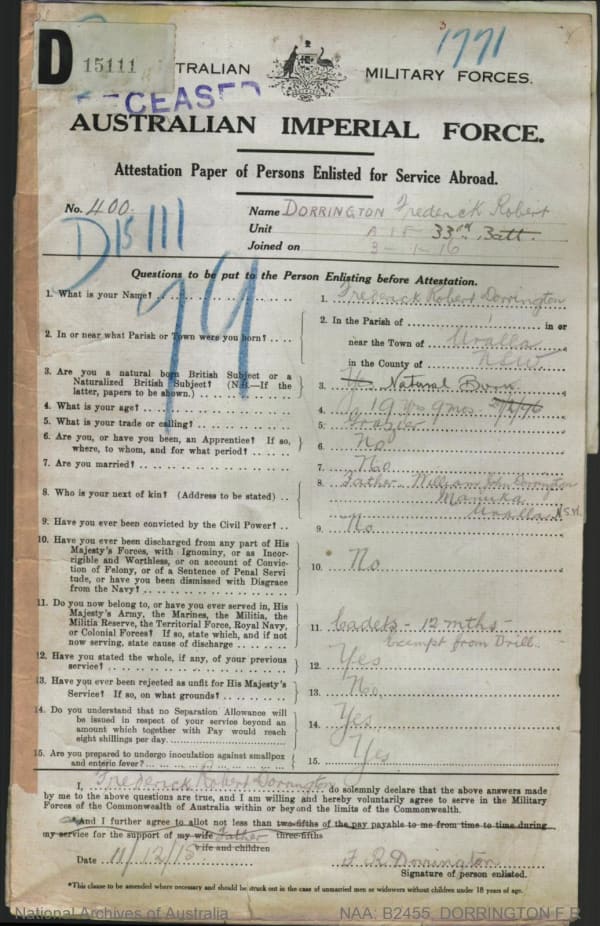 D 15111
1771
AUSTRALIAN MILITARY FORCES.
DECEASED
AUSTRALIAN IMPERIAL FORCE.
Attestation Paper of Persons Enlisted for Service Abroad.
No. 400. Name DORRINGTON Frederick Robert
Unit 33rd Batt.
Joined on 3-1-16
D15111
Questions to be put to the Person Enlisting before Attestation.
1. What is your Name? 1. Frederick Robert Dorrington
2. In or near what Parish or Town were you born? 2. In the Parish of in or
near the Town of Uralla
in the County of NSW
3. Are you a natural born British Subject or a
Naturalized British Subject? (N.B.—If the
latter, papers to be shown.) 3. Natural Born
4. What is your age? 4. 19 yrs 9 mos
5. What is your trade or calling? 5. Grazier
6. Are you, or have you been, an Apprentice? If so,
where, to whom, and for what period? 6. No
7. Are you married? 7. No
8. Who is your next of kin? (Address to be stated) 8. Father William John Dorrington
Manuka
Uralla NSW
9. Have you ever been convicted by the Civil Power? 9. No
10. Have you ever been discharged from any part of His
Majesty's Forces, with Ignominy, or as Incor-
rigible and Worthless, or on account of Convic-
tion of Felony, or of a Sentence of Penal Servi
tude, or have you been dismissed with Disgrace
from the Navy? 10. No
11. Do you now belong to, or have you ever served in, His
Majesty's Army, the Marines, the Militia, the
Militia Reserve, the Territorial Force, Royal Navy,
or Colonial Forces? If so, state which, and if not
now serving, state cause of discharge 11. Cadets - 12 mths -
Exempt from Drill.
12. Have you stated the whole, if any, of your previous
service? 12. Yes
13. Have you ever been rejected as unfit for His Majesty's
Service? If so, on what grounds? 13. No
14. Do you understand that no Separation Allowance will
be issued in respect of your service beyond an
amount which together with Pay would reach
eight shillings per day. 14. Yes
15. Are you prepared to undergo inoculation against smallpox
and enteric fever? 15. Yes
I, Frederick Robert Dorrington do solemnly declare that the above answers made
by me to the above questions are true, and I am willing and hereby voluntarily agree to serve in the Military
Forces of the Commonwealth of Australia within or beyond the limits of the Commonwealth.
*And I further agree to allot not less than two-fifths of the pay payable to me from time to time during
my service for the support of my wife Father three-fifths
wife and children
Date 11/12/15 F R Dorrington
Signature of person enlisted.
*This clause to be amended where necessary and should be struck out in the case of unmarried men or widowers without children under 18 years of age.
National Archives of Australia NAA: B2455, DORRINGTON F R